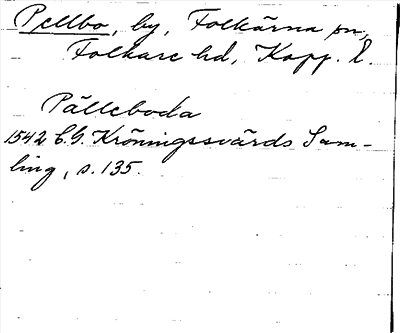 Pellbo, by, Folkärna sn,
Folkare hd, Kopp. l.
Pälleboda
1542 C.G. Kröningssvärds Sam-
ling, s. 135.